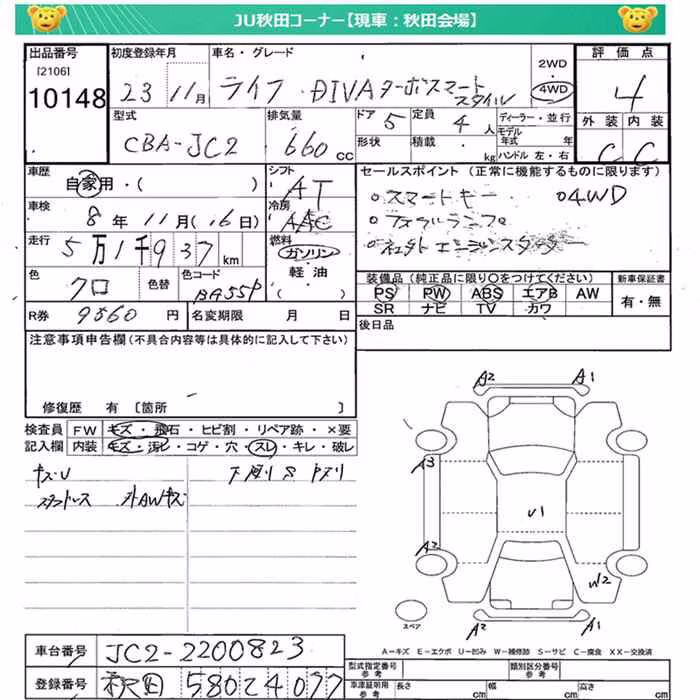 JU秋田コーナー【現車：秋田会場】
出品番号 初度登録年月 車名・グレード 2WD 評価点
[2106]
10148 23 11月 ライフ DIVAターボスマートスタイル 4WD 4
型式 排気量 ドア 5 定員 4 人 ディーラー・並行 外装 内装
CBA-JC2 660 cc 形状 積載 kg モデル年式 年 ハンドル 左・右 C C
車歴 自家用・( ) シフト AT セールスポイント (正常に機能するものに限ります)
車検 8年 11月 (.6日) 冷房 AAC スマートキー 4WD
走行 5万1千937 km 燃料 ガソリン 軽油 ( )
色 クロ 色替 色コード BA55P
装備品 (純正品に限り○をつけてください) 新車保証書
PS PW ABS エアB AW 有・無
SR ナビ TV カワ
R券 9860 円 名変期限 月 日 後日品
注意事項申告欄 (不具合内容等は具体的に記入して下さい)
修復歴 有 [箇所 ]
検査員 FW キズ・飛石・ヒビ割・リペア跡・×要
記入欄 内装 キズ・汚レ・コゲ・穴・スレ・キレ・破レ
キズU 下廻りS
スタッドレス AWキズ
A2 A1
A3
U1
A2
U2
A2 A1
スペア
A-キズ E-エクボ U-凹み W-補修跡 S-サビ C-腐食 XX-交換済
車台番号 JC2-2200823
登録番号 秋田 580 2 4077
型式指定番号 参考 類別区分番号 参考
車庫証明用 参考 長さ cm 幅 cm 高さ cm